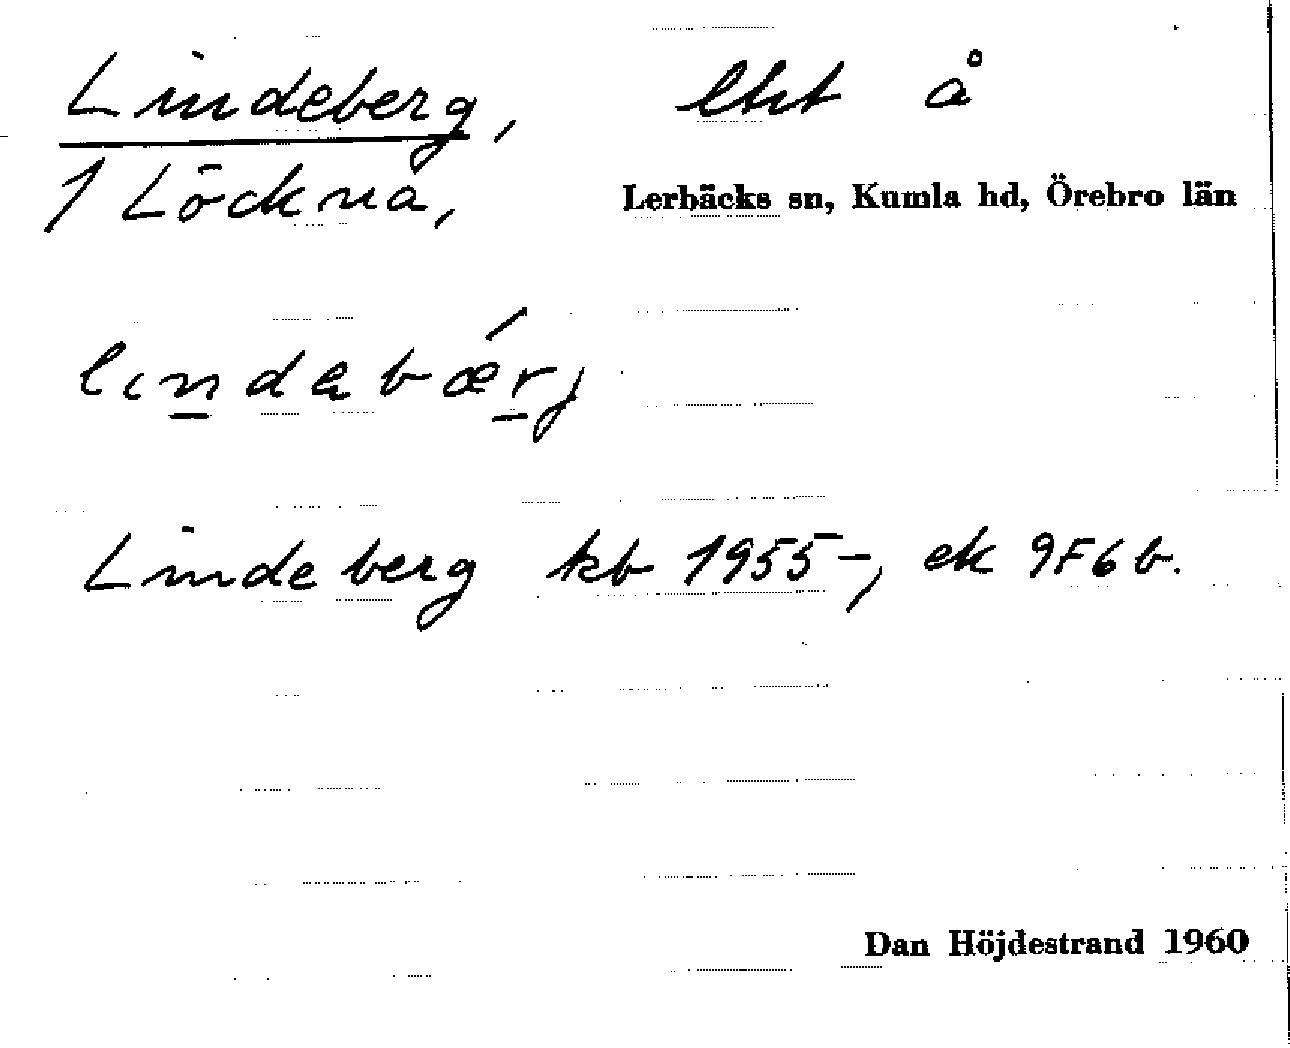 Lindeberg, lht å
1 Löckna,
Lerbäcks sn, Kumla hd, Örebro län
lindabǽrj
Lindeberg kb 1955-, ek 9F6b.
Dan Höjdestrand 1960